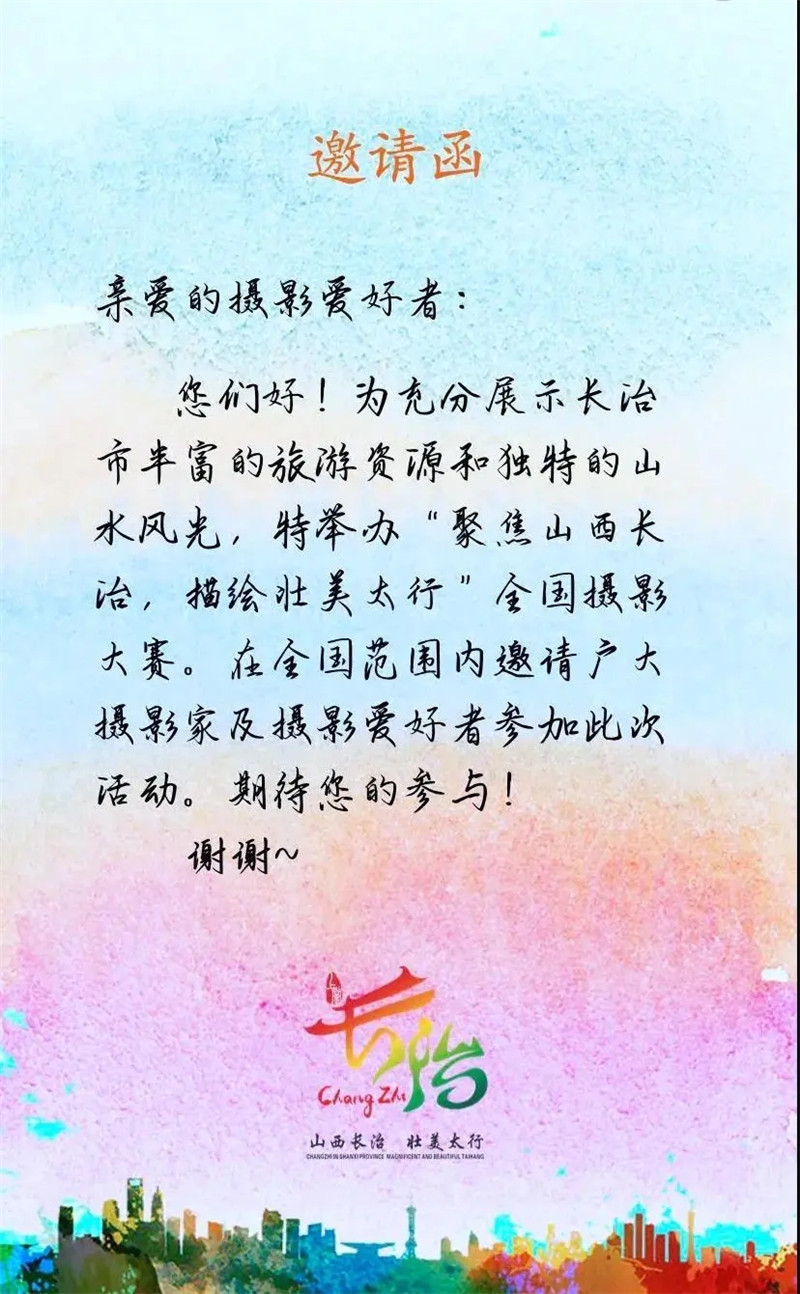 邀请函
亲爱的摄影爱好者：
您们好！为充分展示长治
市丰富的旅游资源和独特的山
水风光，特举办“聚焦山西长
治，描绘壮美太行”全国摄影
大赛。在全国范围内邀请广大
摄影家及摄影爱好者参加此次
活动。期待您的参与！
谢谢~
长治
Chang Zhi
山西长治 壮美太行
CHANGZHI IN SHANXI PROVINCE MAGNIFICENT AND BEAUTIFUL TAIHANG